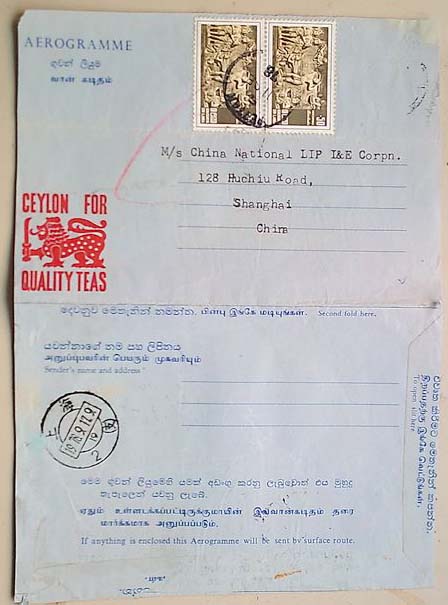 AEROGRAMME
ගුවන් ලියුම
வான் கடிதம்
M/s China National LIP I&E Corpn.
128 Huchiu Road,
Shanghai
China
CEYLON FOR
QUALITY TEAS
දෙවනුව මෙතැනින් නමන්න. பின்பு இங்கே மடியுங்கள். Second fold here.
යවන්නාගේ නම සහ ලිපිනය
அனுப்புபவரின் பெயரும் முகவரியும்
Sender's name and address
To open slit here
මෙම ගුවන් ලියුමෙහි යමක් අඩංගු කරනු ලැබුවොත් එය මුහුදු
තැපෑලෙන් යවනු ලැබේ.
ஏதும் உள்ளடக்கப்பட்டிருக்குமாயின் இவ்வான்கடிதம் தரை
மார்க்கமாக அனுப்பப்படும்.
If anything is enclosed this Aerogramme will be sent by surface route.